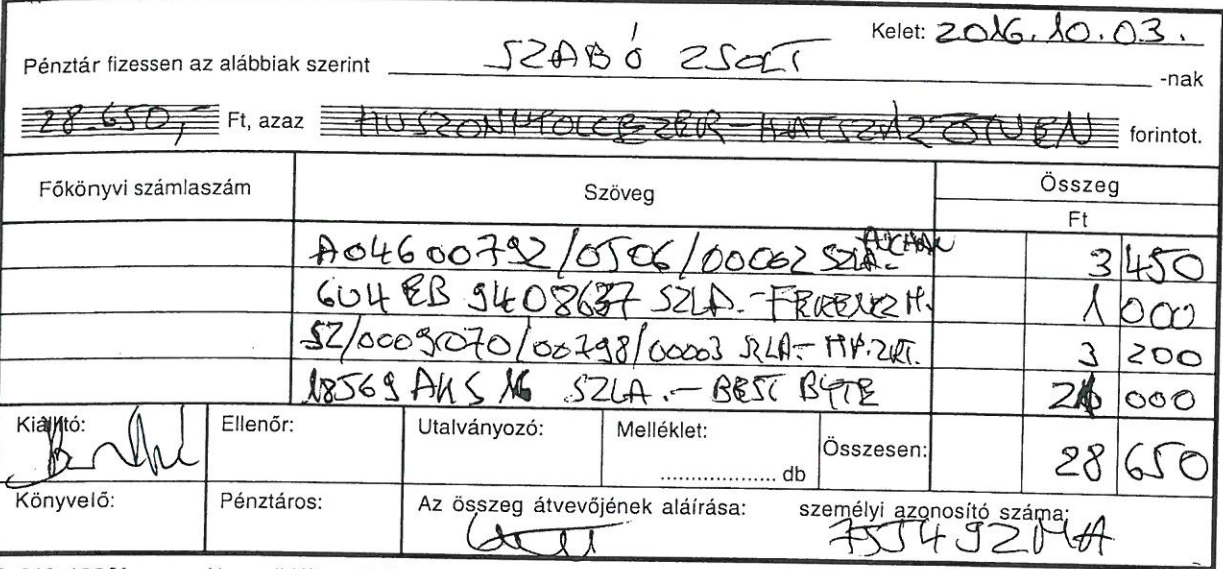 Kelet: 2016.10.03.
Pénztár fizessen az alábbiak szerint SZABÓ ZSOLT -nak
28.650,- Ft, azaz HUSZONNYOLCEZER-HATSZÁZÖTVEN forintot.
Főkönyvi számlaszám Szöveg Összeg
Ft
A04600792/0506/00062 SZLA.- AUCHAN 3 450
6U4EB 9408637 SZLA.- H. 1 000
SZ/0009070/00798/00003 SZLA.- ZRT. 3 200
18569 AKS 16 SZLA.- BEST BYTE 21 000
Kiállító: Ellenőr: Utalványozó: Melléklet: .................. db Összesen: 28 650
Könyvelő: Pénztáros: Az összeg átvevőjének aláírása: személyi azonosító száma:
755492MA